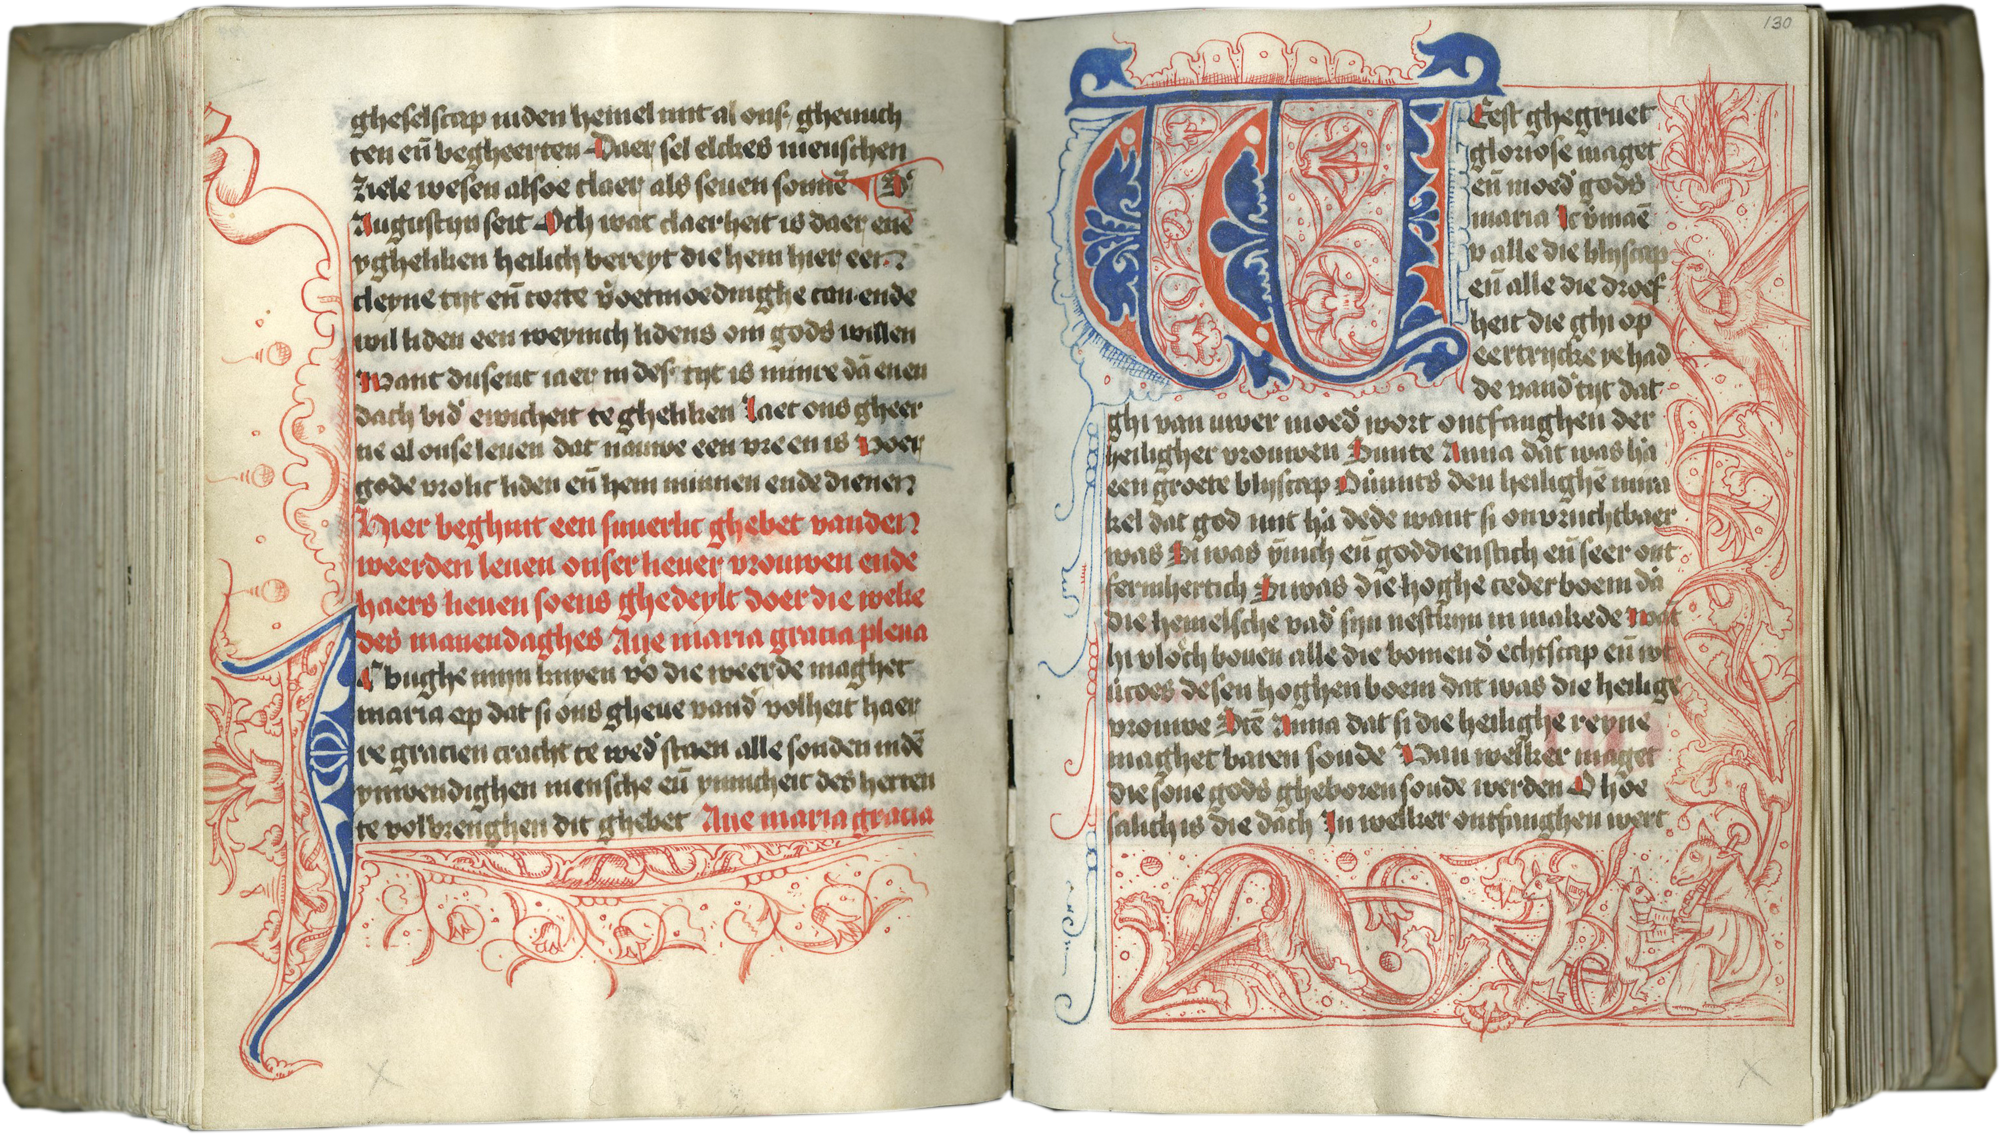 gheselscap inden hemel mit al ons ghenuch
ten eñ begheerten Daer sel elckes menschen
ziele wesen alsoe claer als seuen sonnē
Augustijn seit Och wat claerheit is daer ene
ygheliken heilich bereyt die hem hier een
cleyne tijt eñ corte v̓oetmoedinghe can ende
wil liden een weynich lidens om gods willen
Want dusent iaer in deser tijt is minre dā enen
dach bid̓ ewicheit te gheliken Laet ons gheer
ne al onse leuen dat nauwe een vre en is Voer
gode vrolic liden eñ hem minnen ende dienen
Hier beghint een suuerlic ghebet vanden
weerden leuen onser lieuer vrouwen ende
haers lieuen soens ghedeylt doer die weke
des manendaghes Aue maria gracia plena
Ic bughe mijn knyen vo̓ die weerde maghet
maria op dat si ons gheue vand̓ volheit haer
re gracien cracht te wed̓staen alle sonden indē
ynwendighen mensche eñ ynnicheit des herten
te volbrenghen dit ghebet Aue maria gracia
130
WEest ghegruet
gloriose maget
eñ moed̓ gods
maria Ic v̓maē
v alle die blijscap
eñ alle die droef
heit die ghi op
eertrijcke ye had
de vand̓ tijt dat
ghi van uwer moed̓ wort ontfanghen der
heiligher vrouwen Sunte Anna dat was ha̓
een groete blijscap Ouimits den heilighē mira
kel dat god mit ha̓ dede want si onvruchtbaer
was Si was ynnich eñ goddienstich eñ seer ont
fermhertich Si was die hoghe ceder boem da̓
die hemelsche vad̓ sijn nestkijn in makede Wāt
hi vlōch bouen alle die bomen d̓ echtscap eñ wt
vercoes desen hoghen boem dat was die heilige
vrouwe Stē Anna dat si die heilighe reyne
maghet baren soude Van welker maget
die sone gods gheboren soude werden O hoe
salich is die dach In welker ontfanghen wert